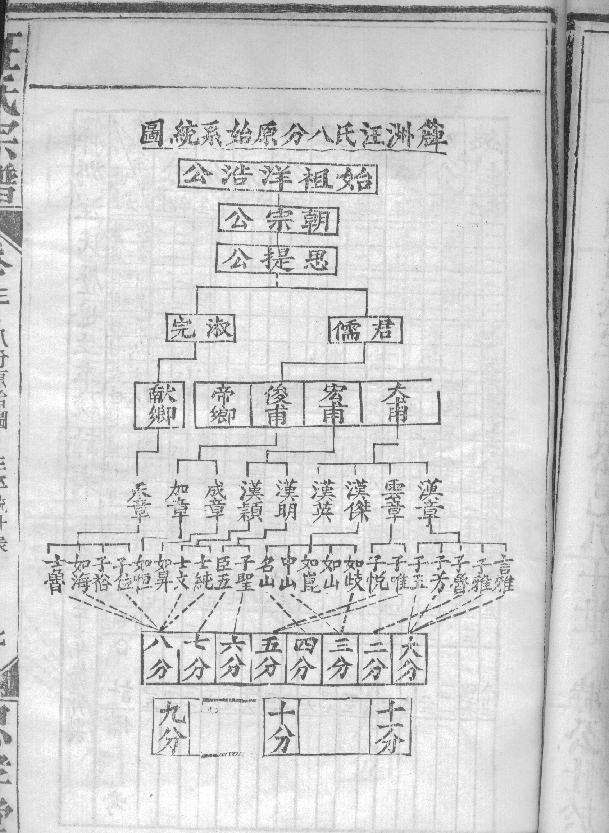 薛洲汪氏八分原始系統圖
始祖洋浩公
朝宗公
思提公
君儒 淑完
大甫 宏甫 俊甫 帝鄉 獻鄉
漢章 雲章 漢傑 漢英 漢明 漢穎 咸章 加章 承章
言雅 子雅 子魯 子芳 子玉 子唯 子悅 如歧 如山 如崑 中山 名山 子聖 臣五 士純 士文 如昇 如恒 子位 子裕 如海 言魯
大分 二分 三分 四分 五分 六分 七分 八分
十一分 十分 九分
汪氏宗譜
卷三